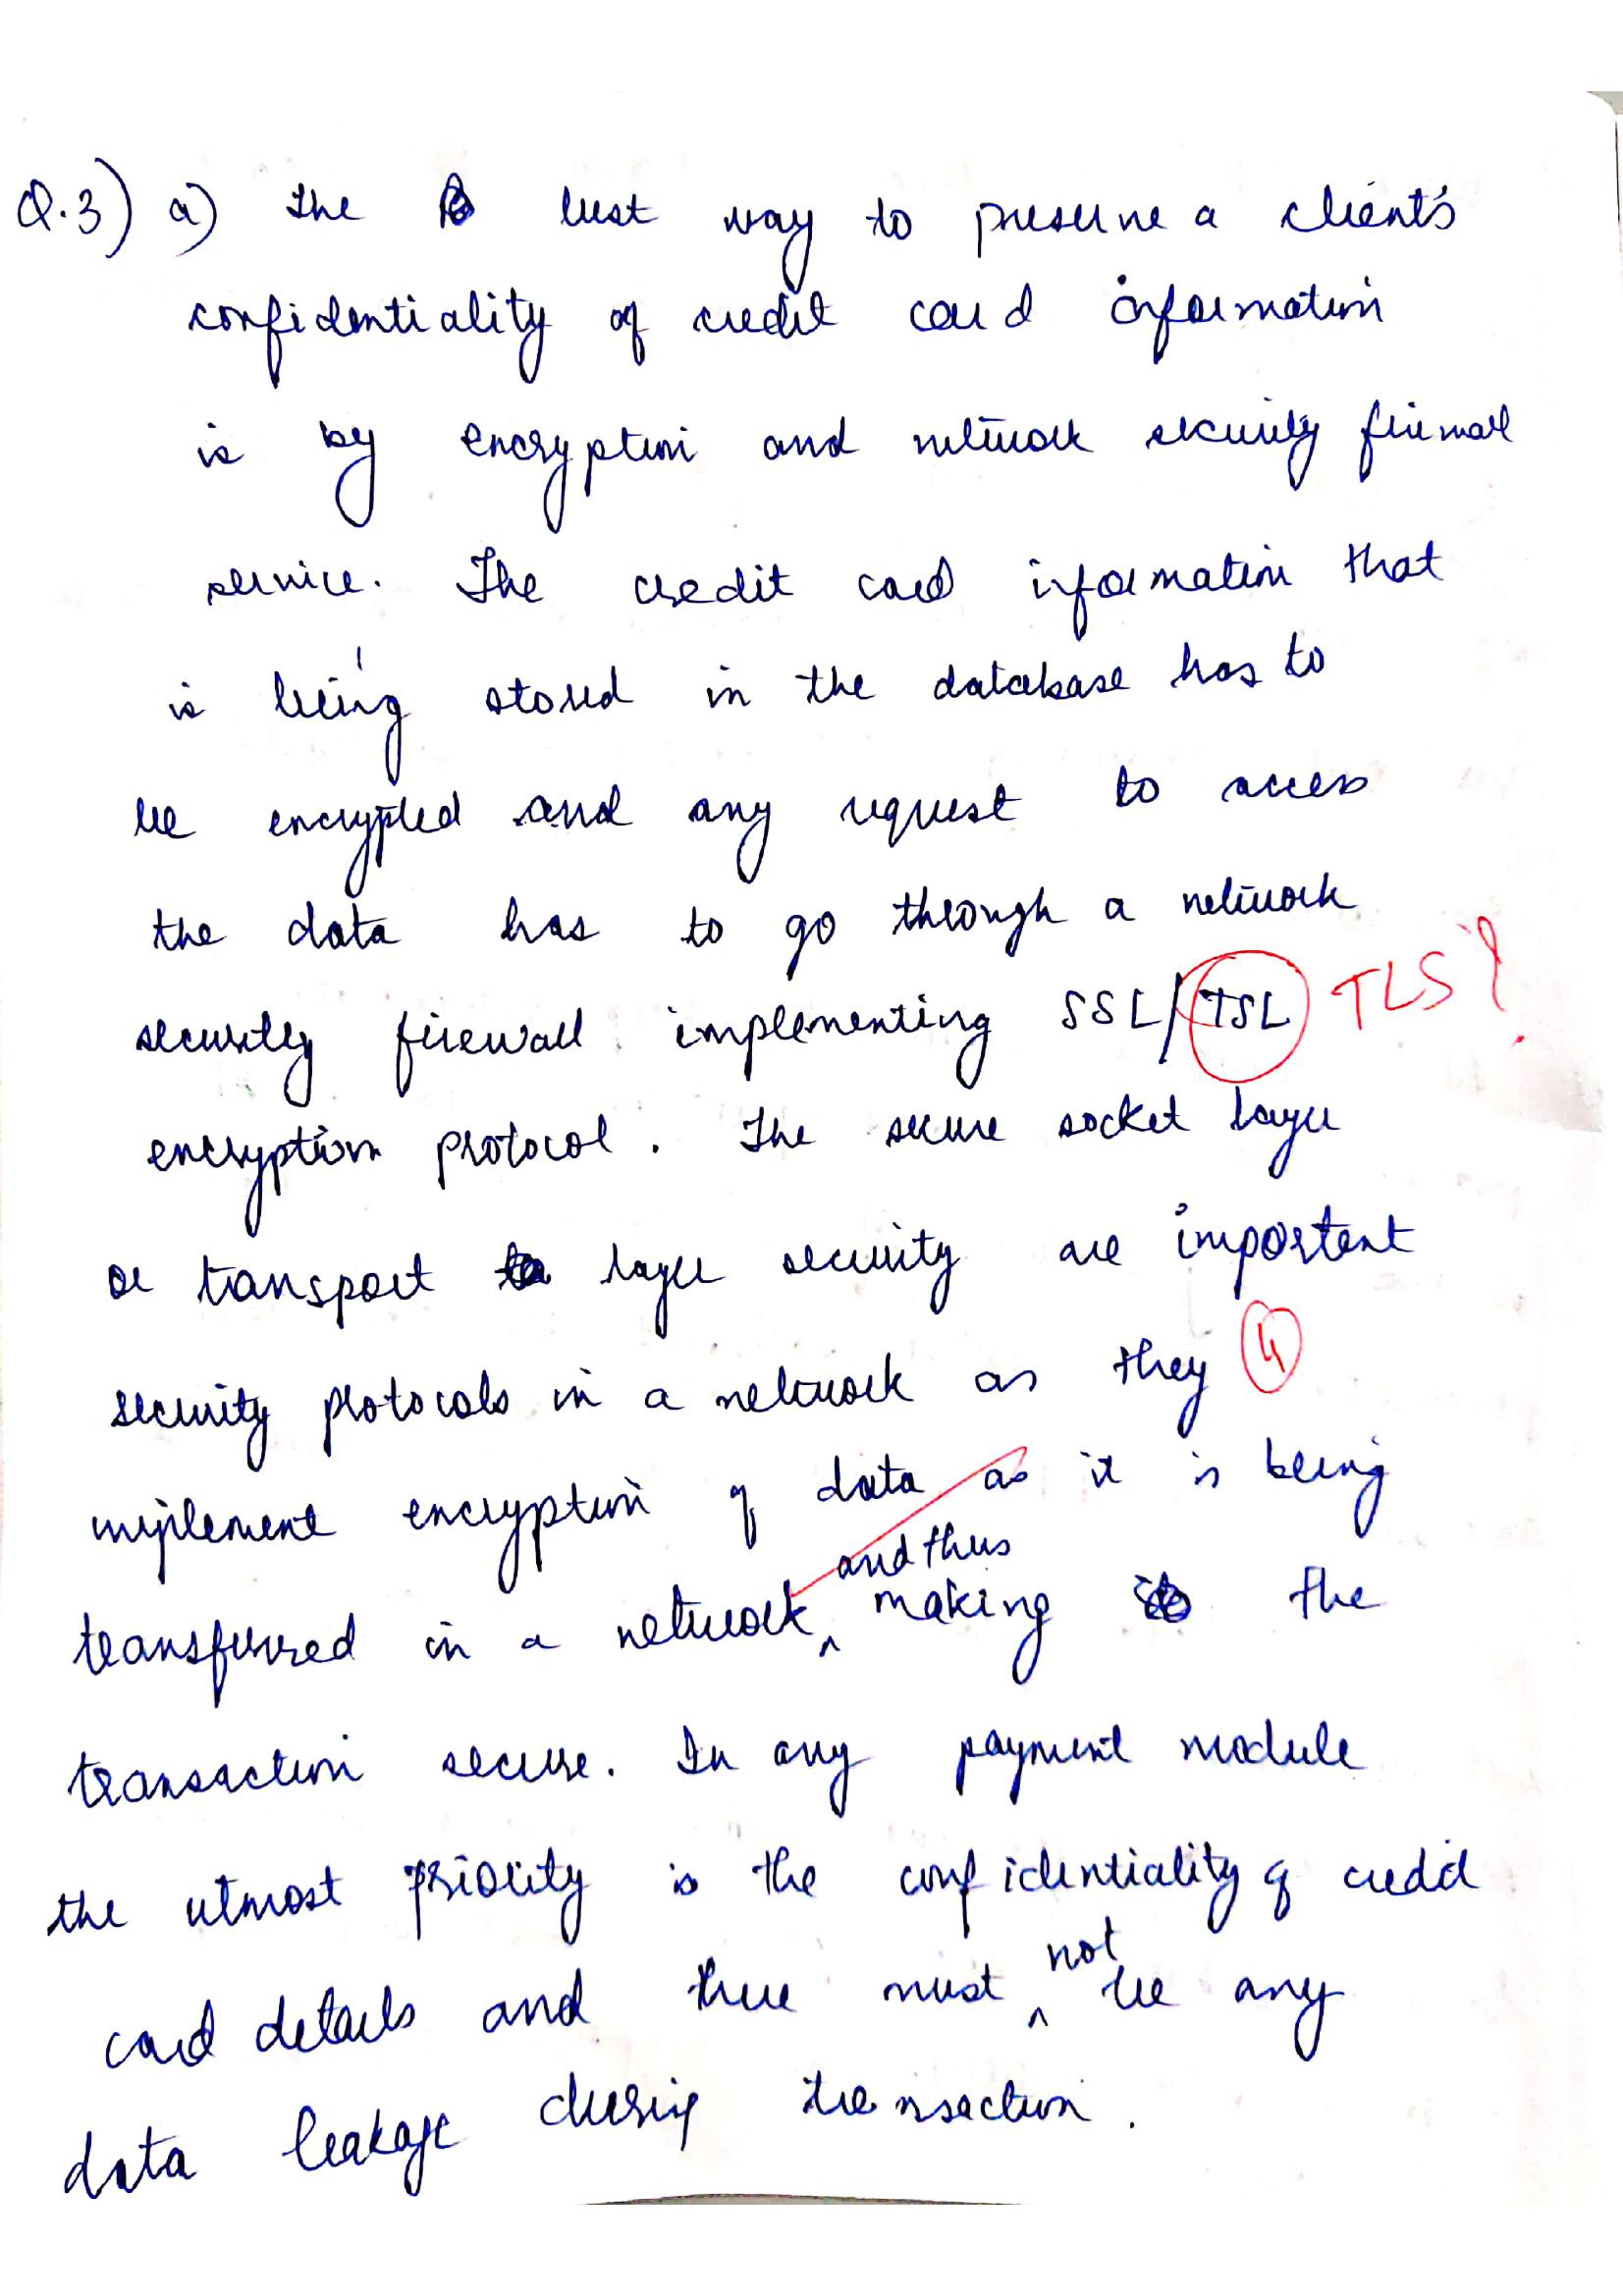 Q.3) a) The best way to preserve a client's
confidentiality of credit card information
is by encryption and network security firewall
service. The credit card information that
is being stored in the database has to
be encrypted and any request to access
the data has to go through a network
security firewall implementing SSL/TSL TLS?
encryption protocol. The secure socket layer
or transport layer security are important
security protocols in a network as they 4
implement encryption of data as it is being
and thus
transferred in a network ^ making the
transaction secure. In any payment module
the utmost priority is the confidentiality of credit
not
card details and there must ^ be any
data leakage during transaction.